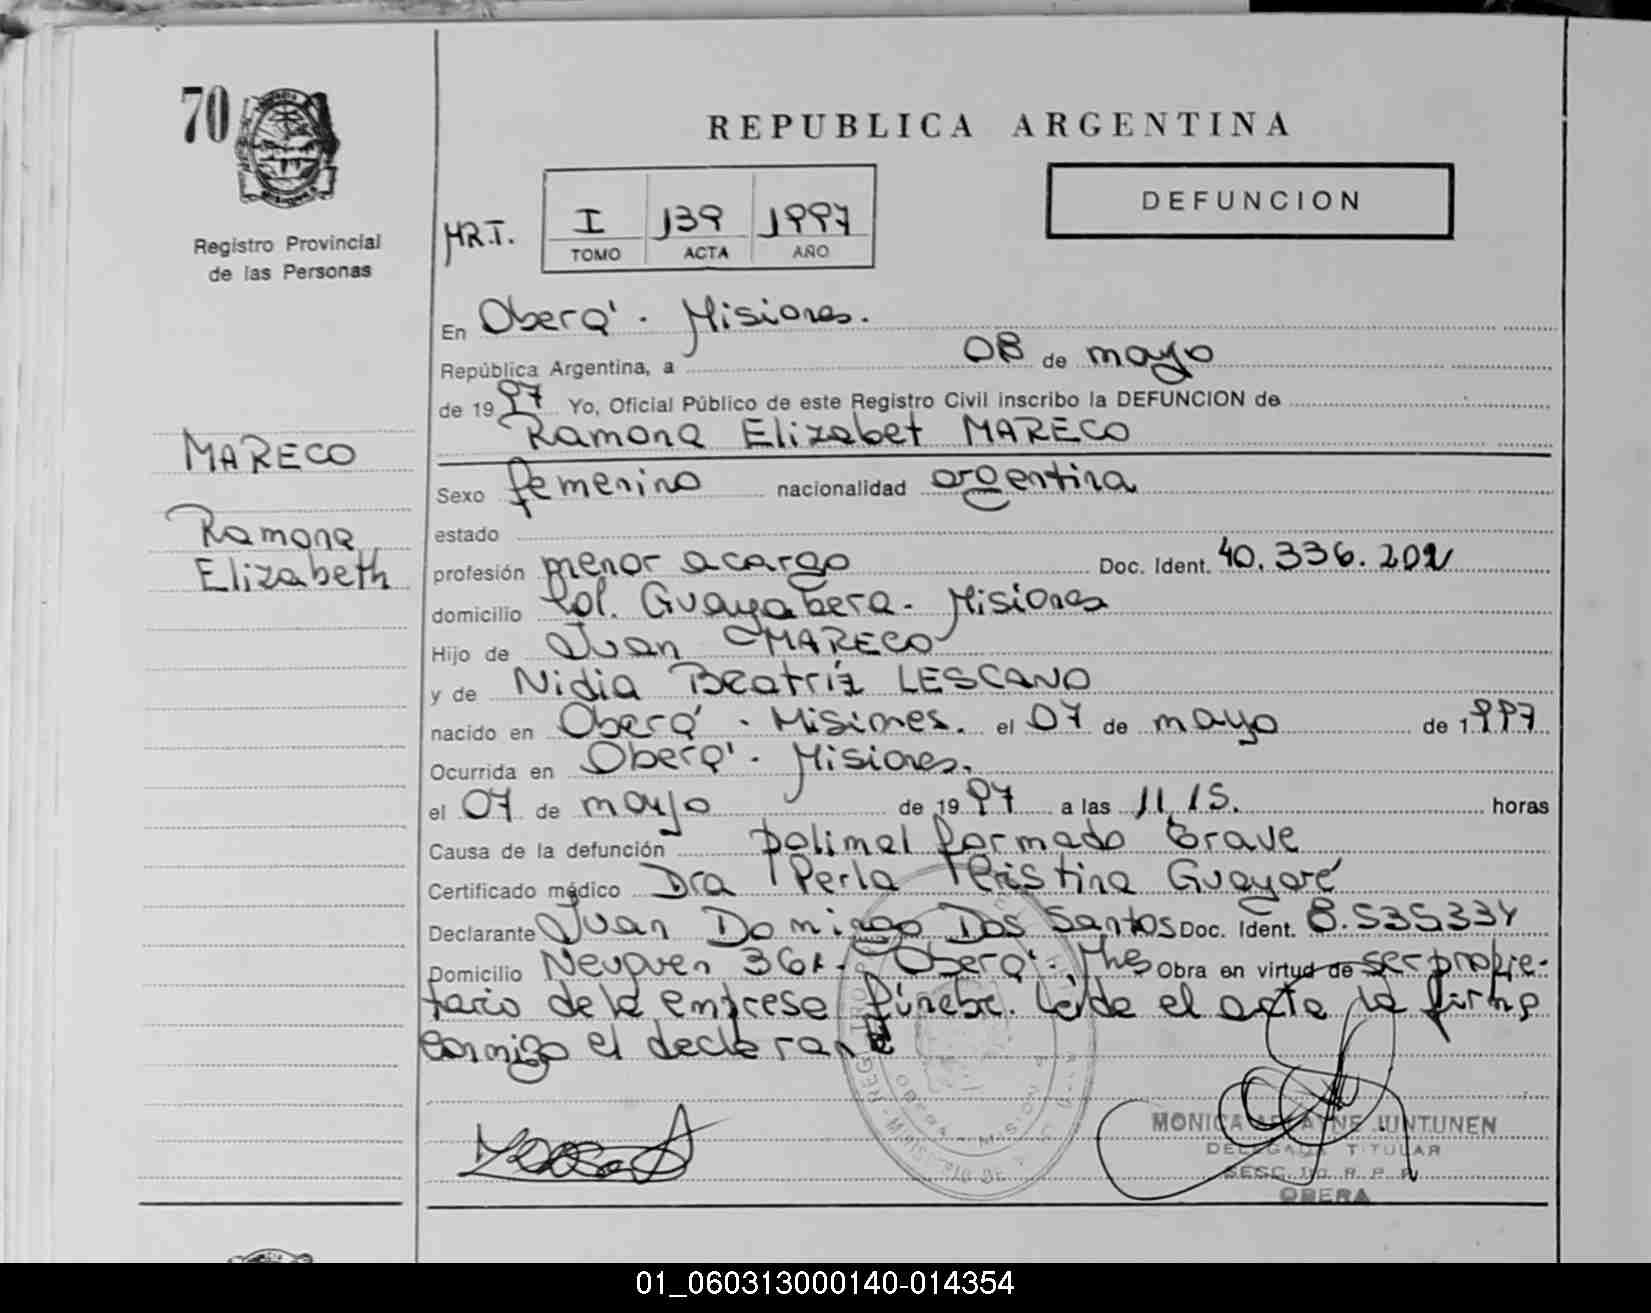 70
Registro Provincial
de las Personas
MARECO
Ramona
Elizabeth
REPUBLICA ARGENTINA
DEFUNCION
I 139 1997
TOMO ACTA AÑO
En Oberá . Misiones.
República Argentina, a 08 de mayo
de 19 97 Yo, Oficial Público de este Registro Civil inscribo la DEFUNCION de
Ramona Elizabet MARECO
Sexo femenino nacionalidad argentina
estado
profesión menor a cargo Doc. Ident. 40.336.202
domicilio Col. Guayabera - Misiones
Hijo de Juan MARECO
y de Nidia Beatríz LESCANO
nacido en Oberá . Misiones. el 07 de mayo de 1997
Ocurrida en Oberá . Misiones.
el 07 de mayo de 19 97 a las 11,15. horas
Causa de la defunción polimal formado Grave
Certificado médico Dra Perla Cristina Guayaré
Declarante Juan Domingo Dos Santos Doc. Ident. 8.535.334
Domicilio Neuquen 361 - Oberá - Mnes Obra en virtud de ser propie-
tario de la empresa fúnebre. Leída el acta la firma
conmigo el declarante
MONICA JUNTUNEN
DELEGADA TITULAR
OBERA
01_060313000140-014354